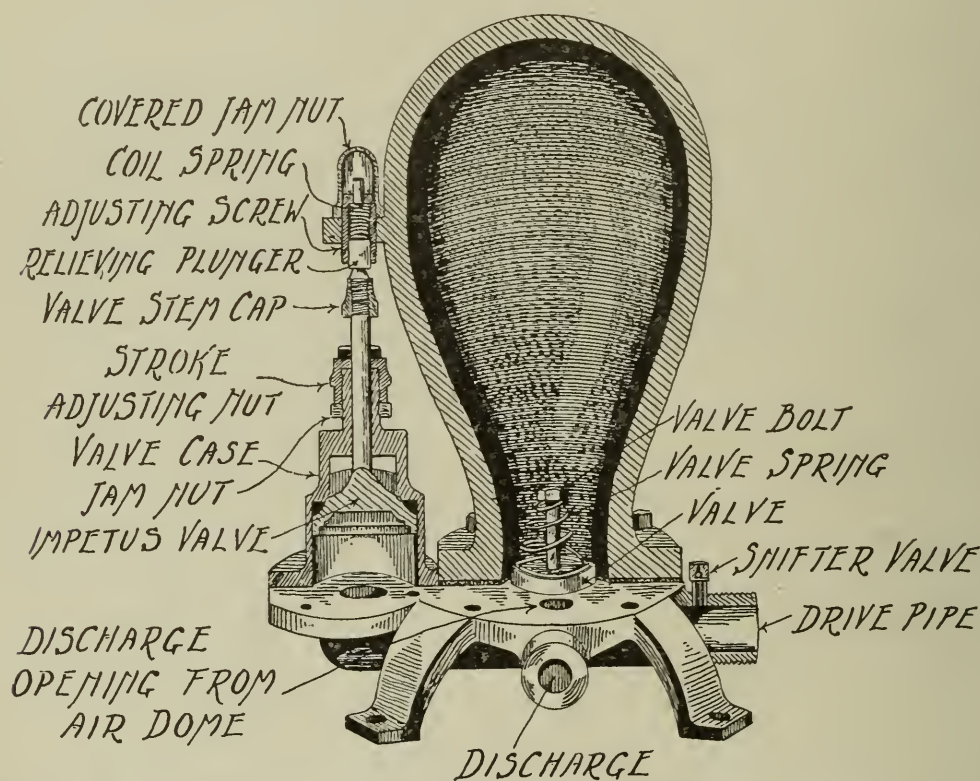 COVERED JAM NUT
COIL SPRING
ADJUSTING SCREW
RELIEVING PLUNGER
VALVE STEM CAP
STROKE
ADJUSTING NUT
VALVE CASE
JAM NUT
IMPETUS VALVE
DISCHARGE
OPENING FROM
AIR DOME
VALVE BOLT
VALVE SPRING
VALVE
SNIFTER VALVE
DRIVE PIPE
DISCHARGE